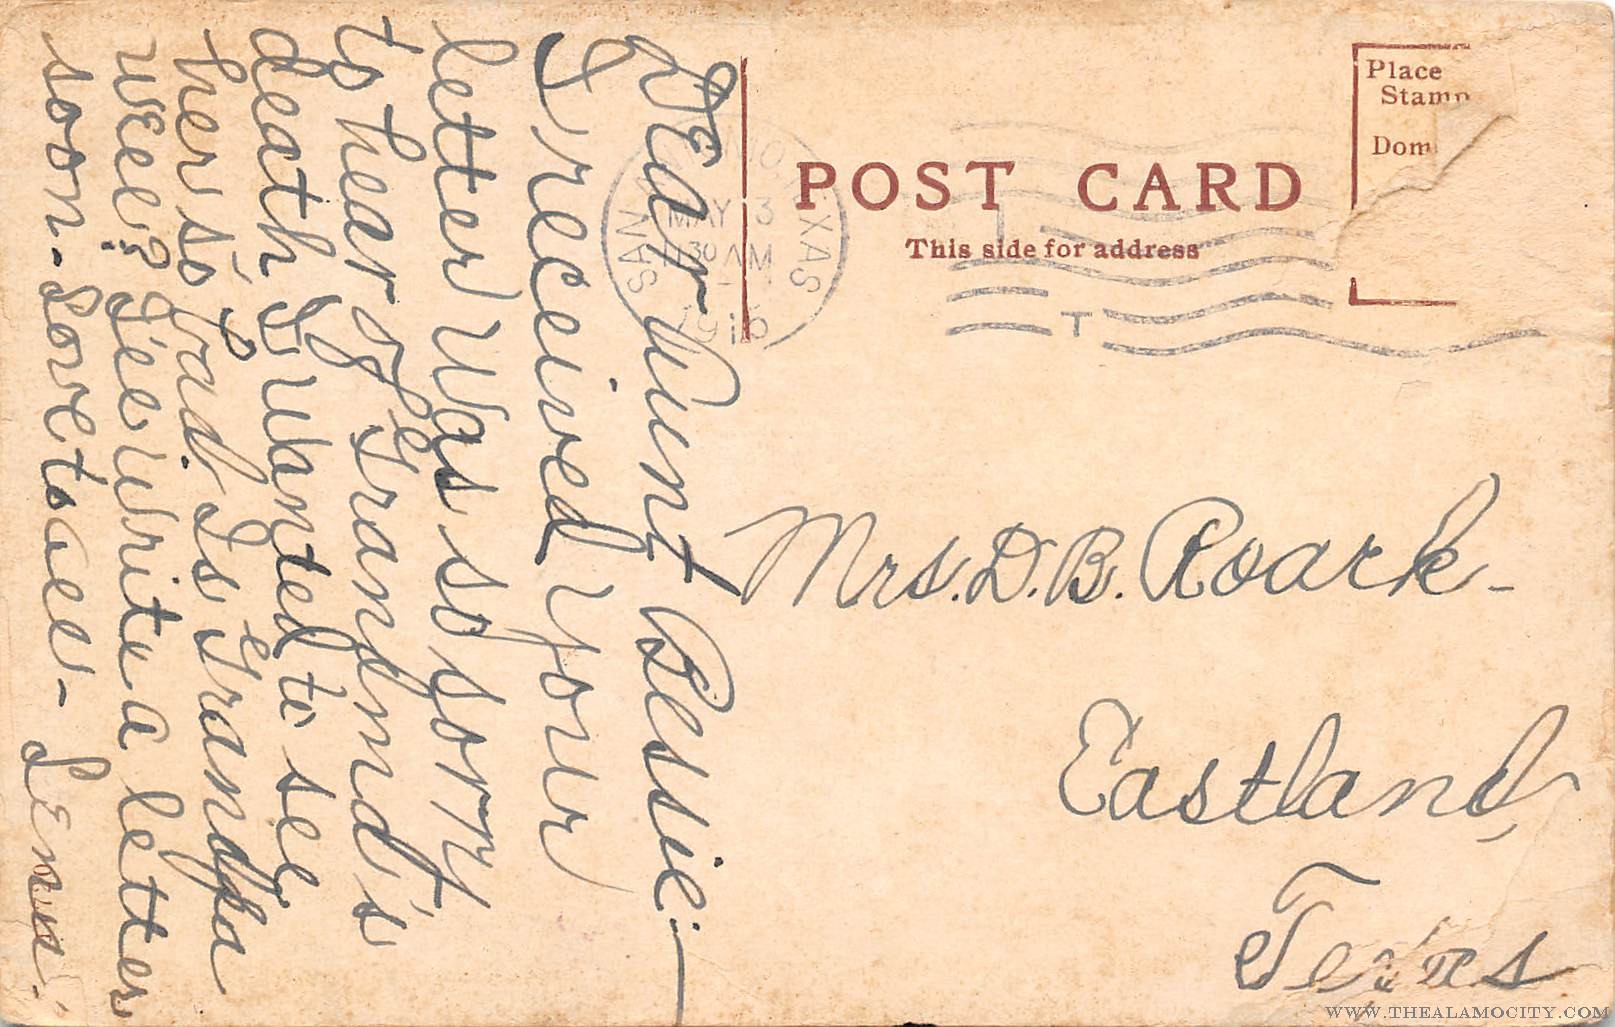 Dear Aunt Bessie. —
I received your
letter was so sorry
to hear of Grandmd's
death I wanted to see
her so bad. Is Grandpa
well? I'll write a letter
soon - Love to all -
POST CARD
This side for address
Place
Stamp
Dom
SAN TEXAS
MAY 3
30 AM
T
Mrs. D. B. Roark -
Eastland,
Texas
WWW.THEALAMOCITY.COM